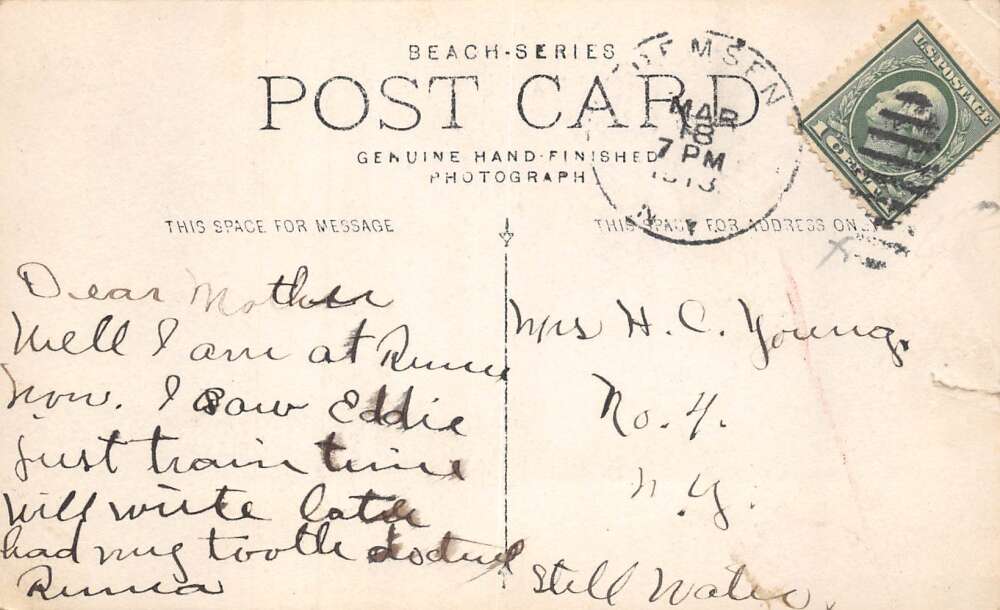 BEACH-SERIES
POST CARD
GENUINE HAND-FINISHED
PHOTOGRAPH
REMSEN
MAR
18
7 PM
1913
N.Y.
U.S. POSTAGE
1
THIS SPACE FOR MESSAGE
THIS SPACE FOR ADDRESS ONLY
Dear Mother
Well I am at
now. I saw Eddie
just train time
will write later
had my tooth
Mrs H. C. Young.
No. 4.
N.Y.
Still Water.